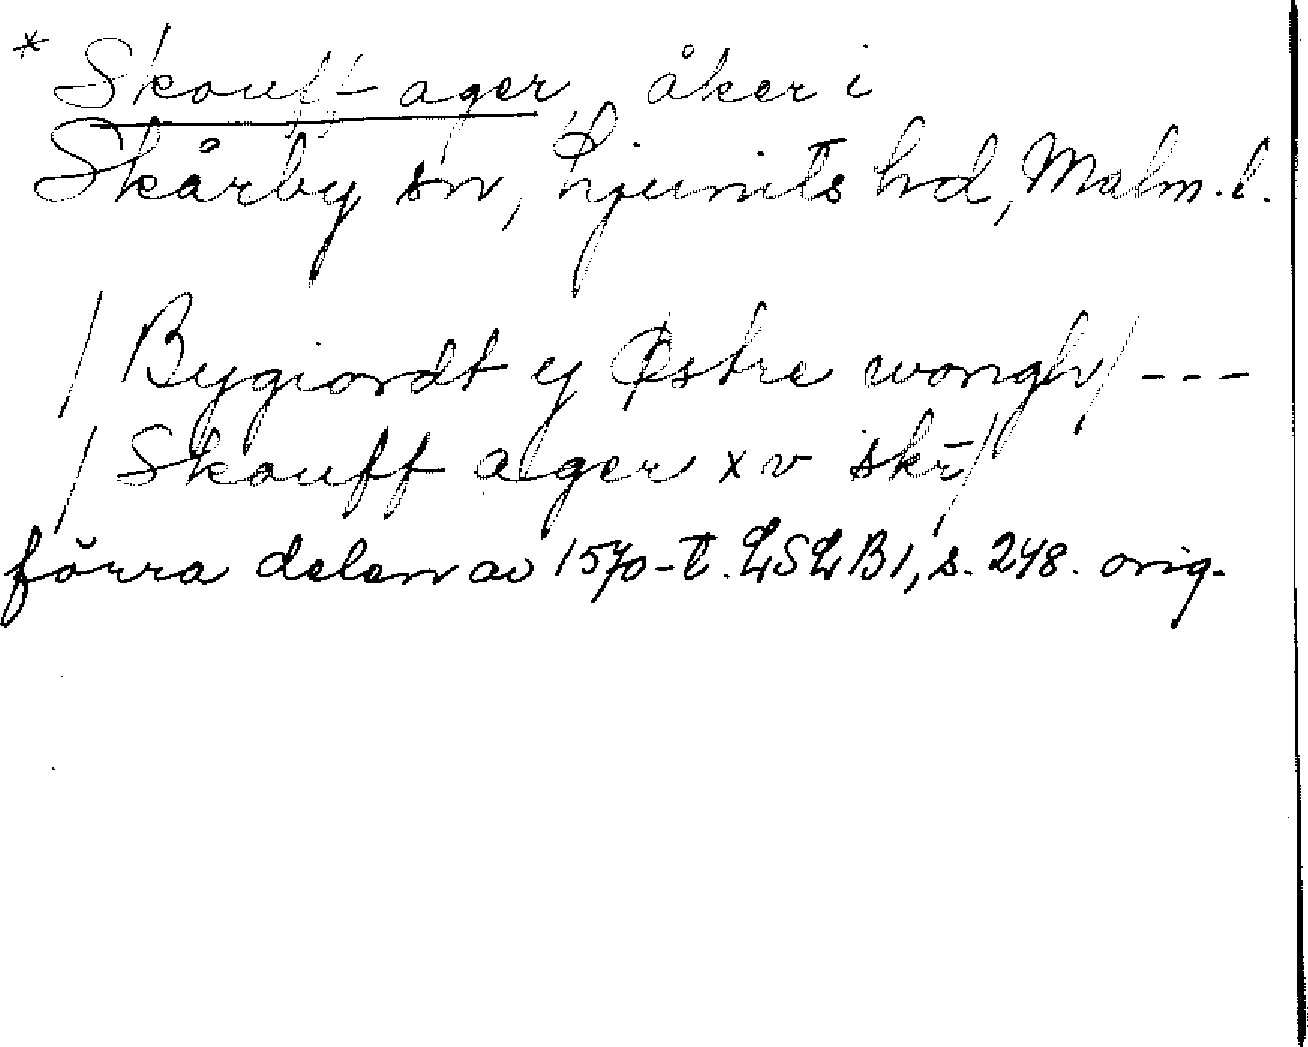 * Skouff ager, åker i
Skårby sn, Ljunits hd, Malm. l.
/ Bygiordt y Østre wongh / ---
/ Skouff ager xv skr̄ /
förra delen av 1570-t. LSLB1, s. 248. orig.